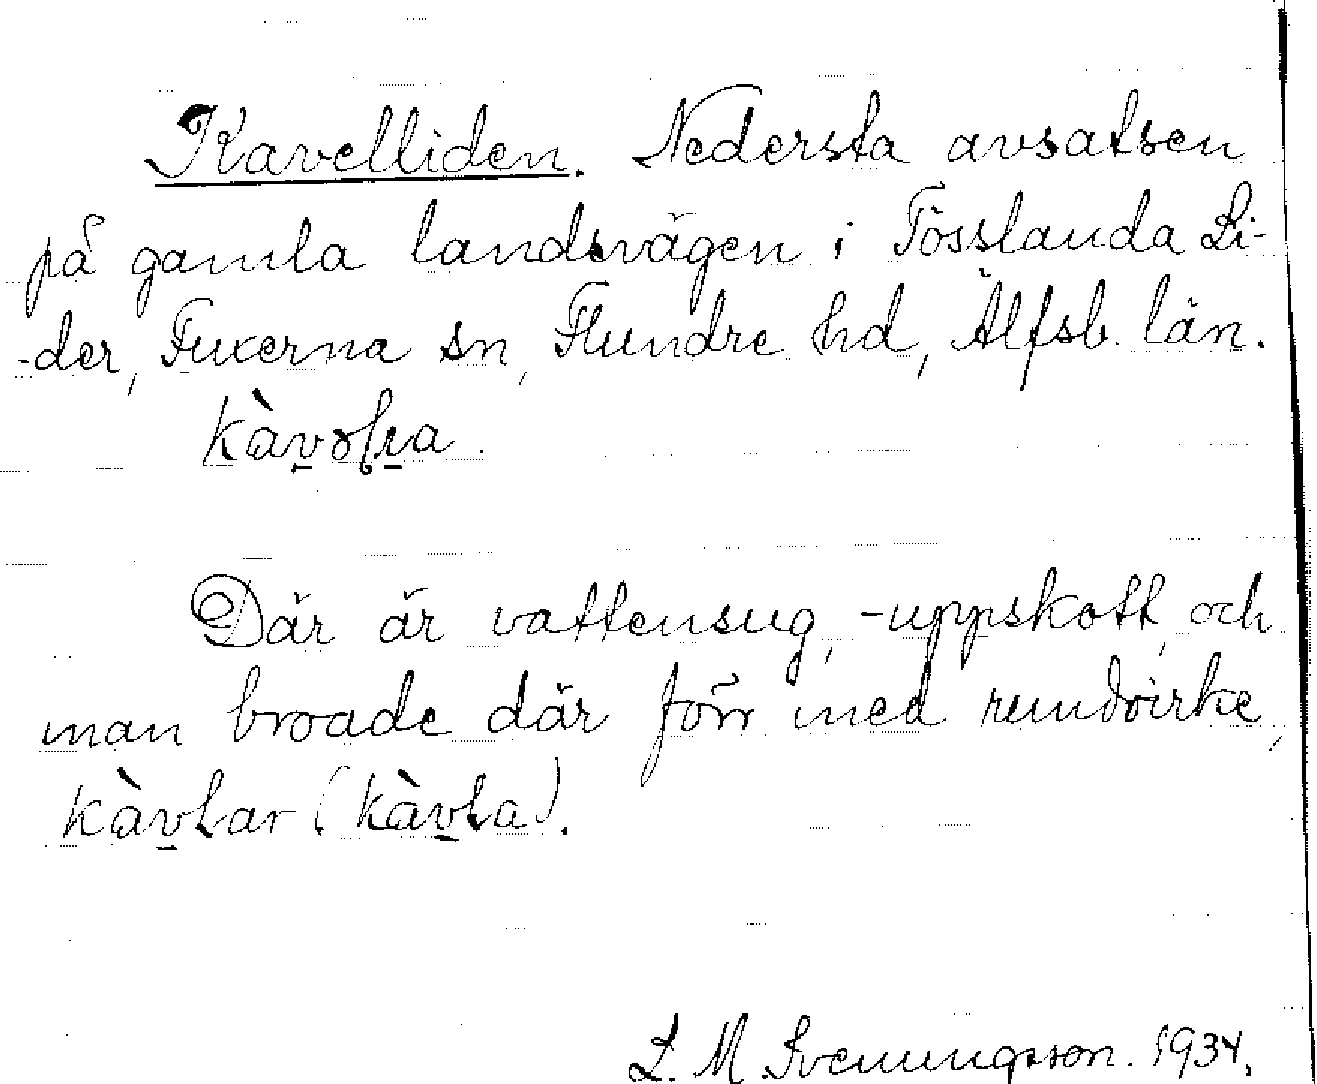 Kavelliden. Nedersta avsatsen
på gamla landsvägen i Tösslanda Li-
-der, Fuxerna sn, Flundre hd, Älfsb. län.
Där är vattensug, -uppskott, och
man broade där förr med rundvirke,
kàvlar (kàvla).
L. M. Svenungsson. 1934.